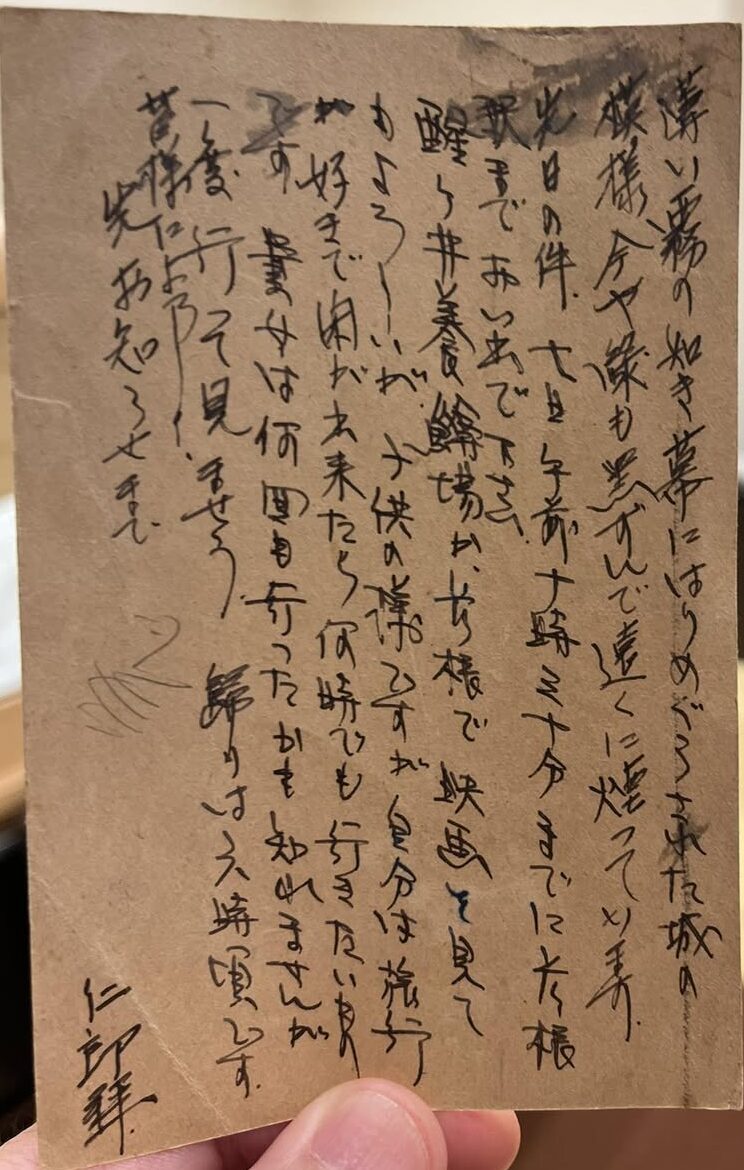 薄い霧の如き幕にはりめぐらされた城の
模様、今や緑も黒ずんで遠くに煙っています。
先日の件、七日午前十時三十分までに大垣
駅までおい出で下さい。
醒ヶ井養鱒場か、大垣で映画を見て
もよろしいが、子供の様ですが自分は旅行
が好きで用が出来たら何時でも行きたいもの
です。貴女は何回も行ったかも知れませんが
一度行って見ませう。帰りは六時頃です。
皆様によろしく。
先お知らせまで
仁郎拝